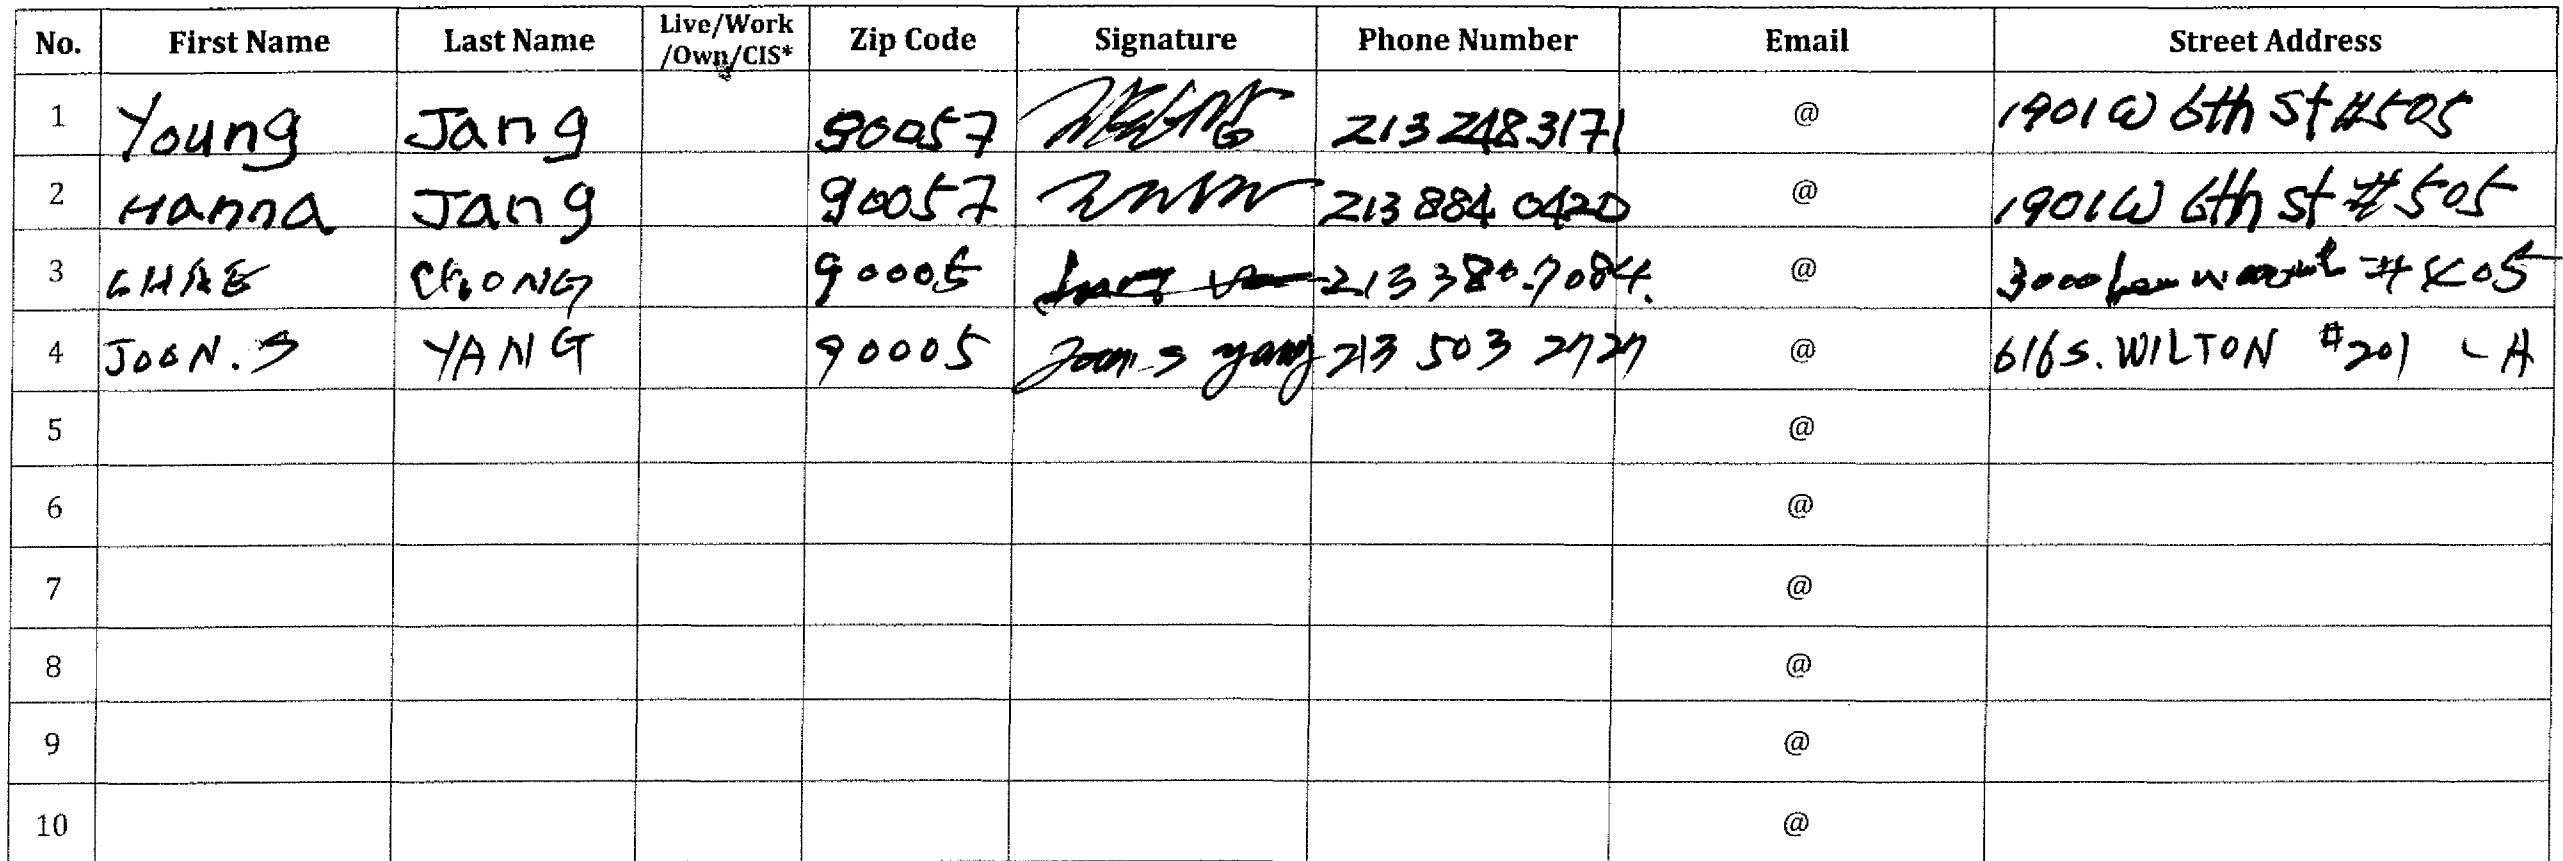 No. First Name Last Name Live/Work /Own/CIS* Zip Code Signature Phone Number Email Street Address
1 Young Jang 90057 213 248 3171 @ 1901 W 6th St #505
2 Hanna Jang 90057 213 884 0420 @ 1901 W 6th st #505
3 CHAE CHONG 90005 213 380-7084. @ 3000
4 JOON. S YANG 90005 Joon S yang 213 503 2727 @ 616 S. WILTON #201 LA
5 @
6 @
7 @
8 @
9 @
10 @